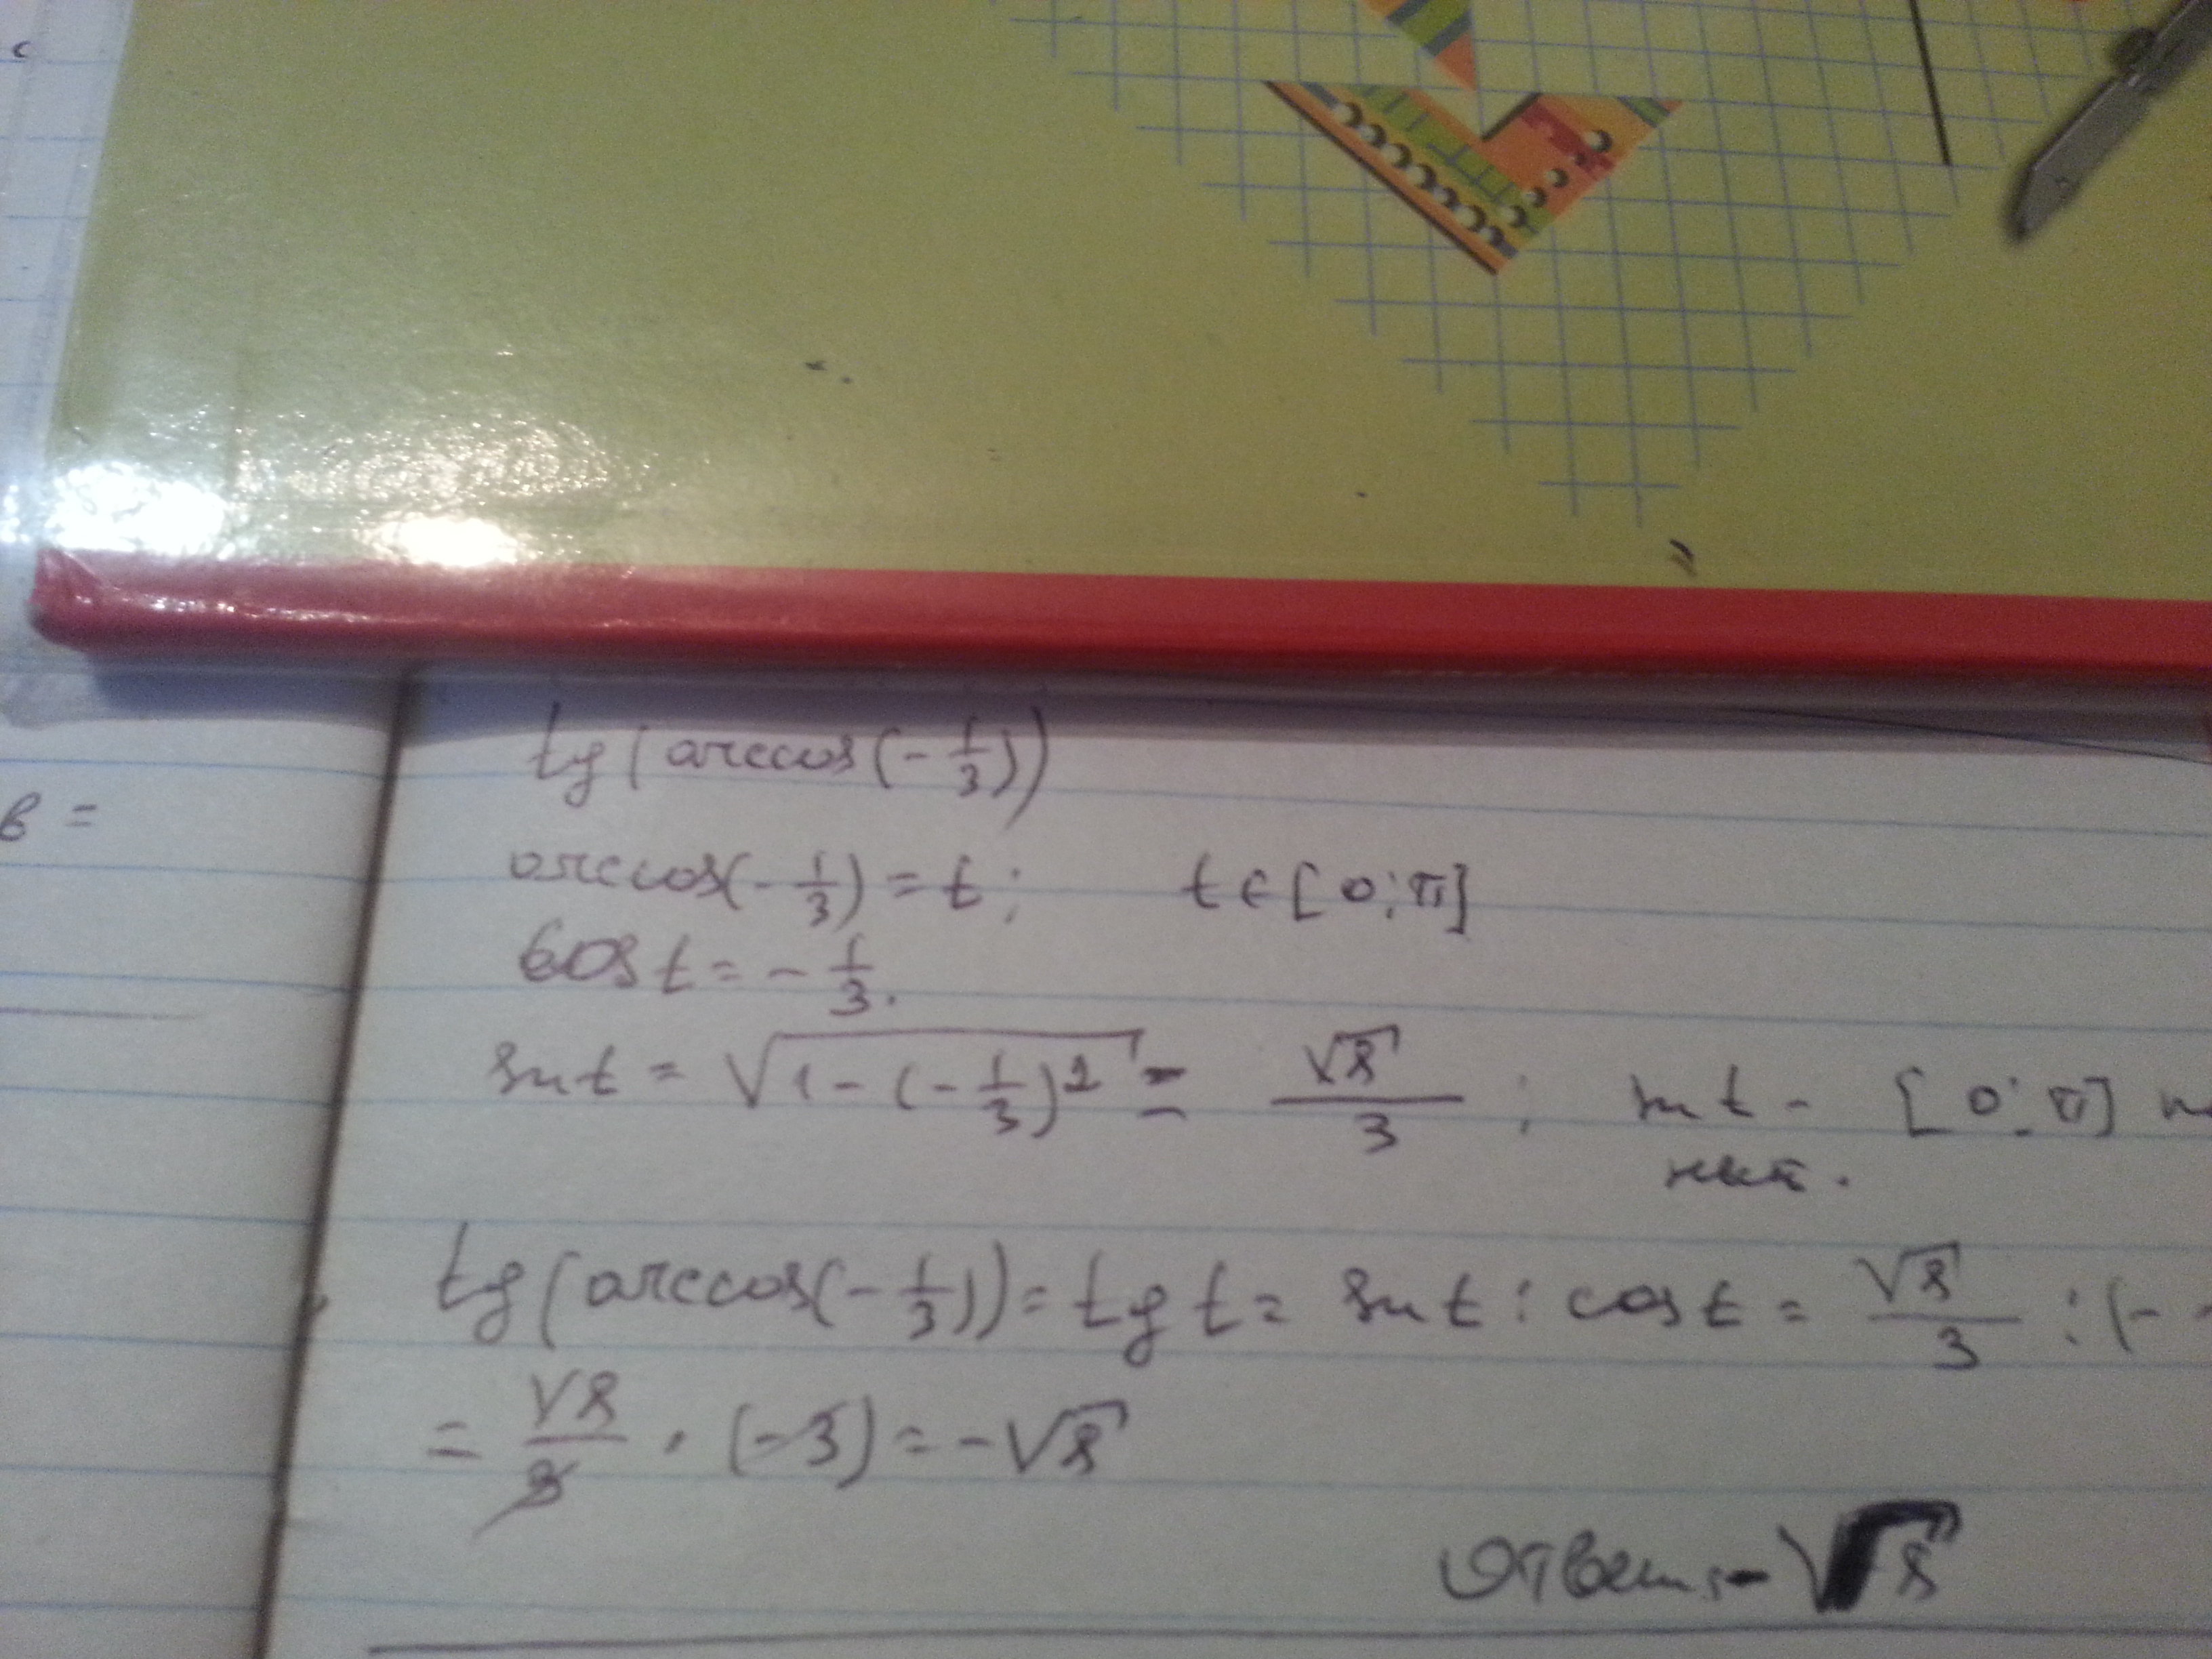 в =
tg(arccos(-1/3))
arccos(-1/3) = t; t∈[0;π]
cos t = -1/3.
sin t = √(1-(-1/3)²) = √8/3 ; sin t - [0;π]
tg(arccos(-1/3)) = tg t = sin t : cos t = √8/3 : (-
= √8/3 · (-3) = -√8
Ответ: -√8